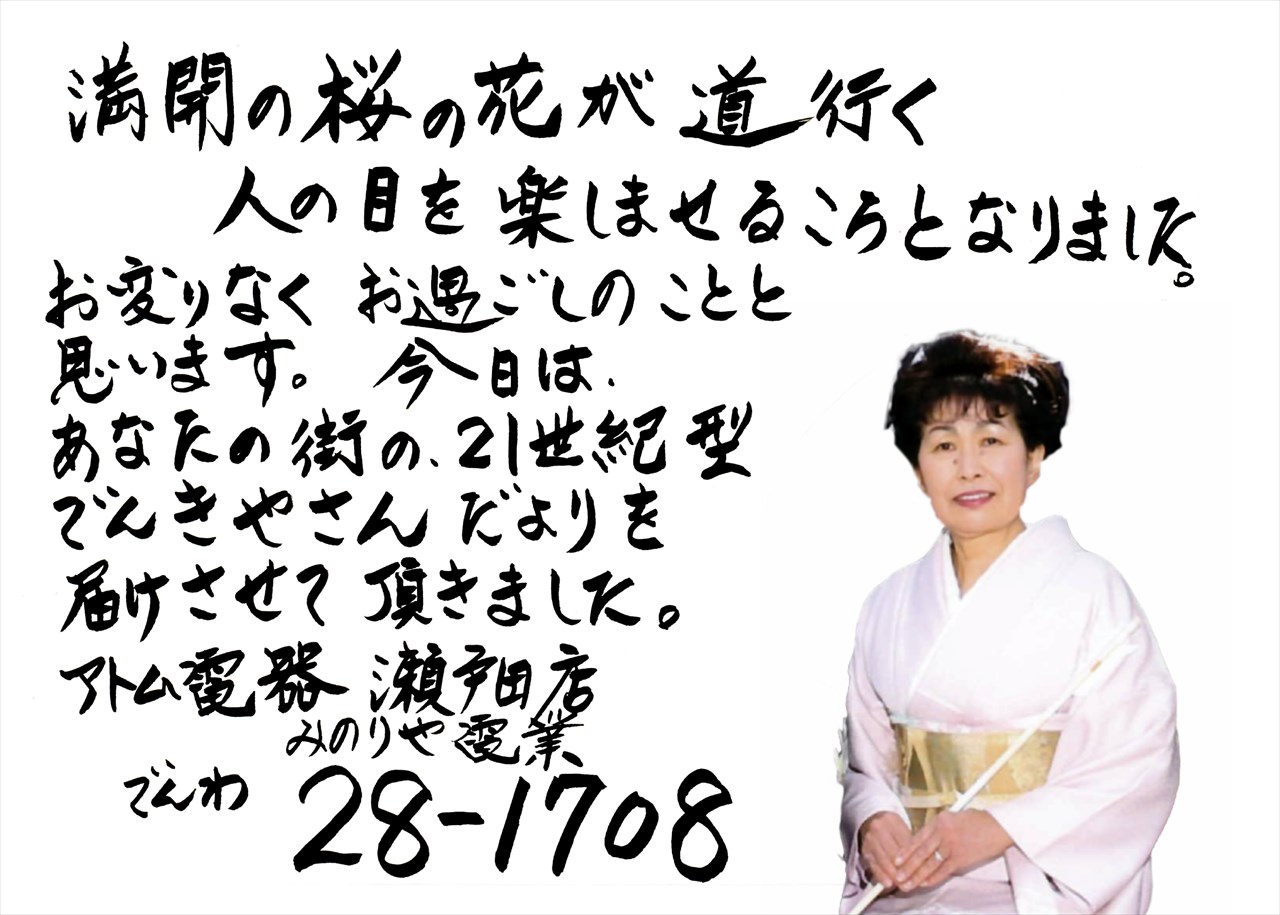 満開の桜の花が道行く
人の目を楽しませるころとなりました。
お変りなく お過ごしのことと
思います。 今日は、
あなたの街の、21世紀型
でんきやさんだよりを
届けさせて頂きました。
アトム電器 瀬戸田店
みのりや電業
でんわ 28-1708